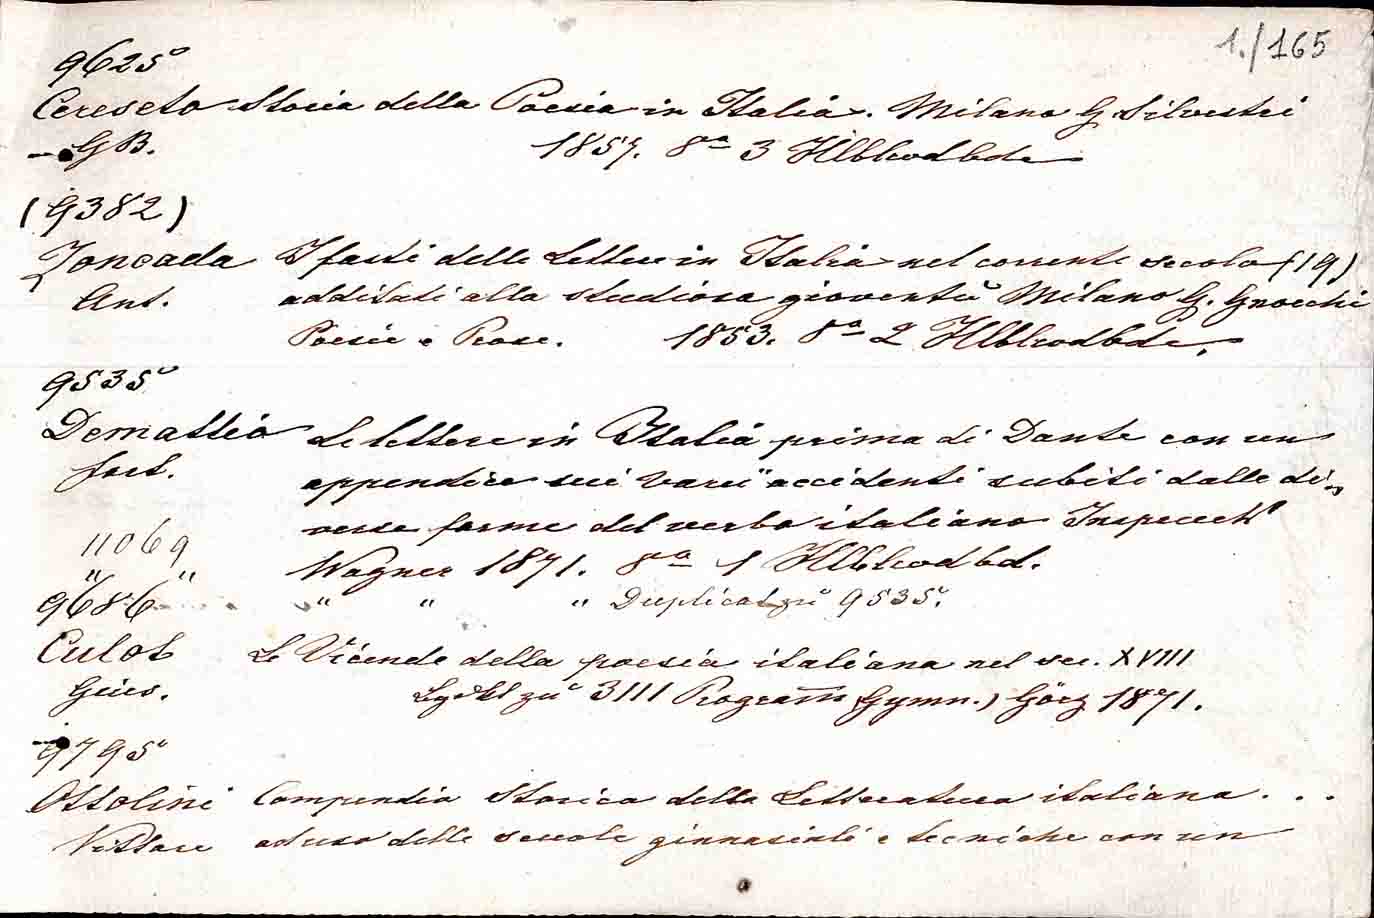 1./165
9625
Cereseto Storia della Poesia in Italia. Milano G. Silvestri
GB. 1857. 8º 3 Hlblwdbde
(9382)
Zoncada I fasti delle Lettere in Italia nel corrente secolo (19)
Ant. additati alla studiosa gioventù Milano G. Gnocchi
Poesie e Prose. 1853. 8º 2 Hlblwdbde.
9535
Demattio Le lettere in Italia prima di Dante con un
fort. appendice sui varii accidenti subiti dalle di-
verse forme del verbo italiano Innspruck
11069 Wagner 1871. 8º 1 Hlblwdbd.
" "
9686 " " " Duplicat zu 9535.
Culot Le Vicende della poesia italiana nel sec. XVIII
Gius. zu 3111 Program (Gymn.) Görz 1871.
9795
Ottolini Compendio Storico della Letteratura italiana ...
Vittore ad uso delle scuole ginnasiali e tecniche con un